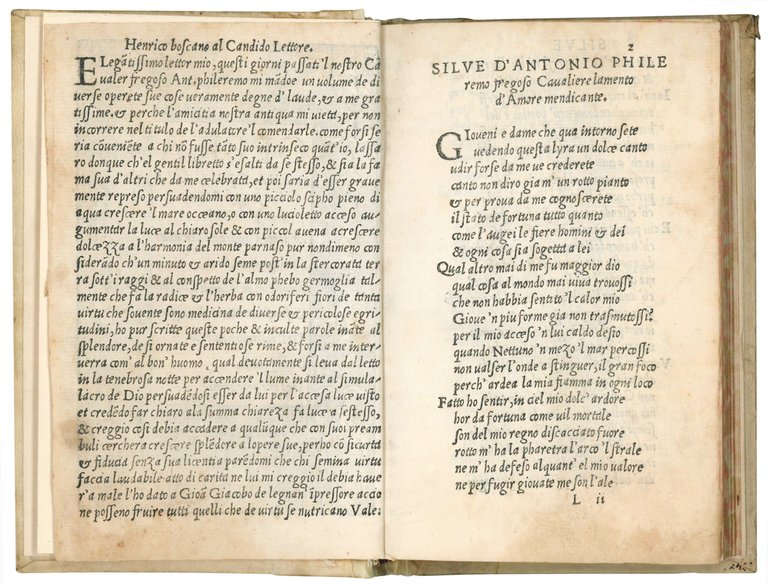 Henrico boscano al Candido Lettore.
ELegãtissimo lettor mio, questi giorni passati'l nostro Ca
ualer fregoso Ant. phileremo mi mãdoe un volume de di
uerse operete sue cose veramente degne d'laude, & a me gra
tissime. & perche l'amicitia nostra antiqua mi vieta, per non
incorrere nel titulo de l'adulatore'l comendarle. come forsi se
ria cõueniẽte a chi nõ fusse tãto suo intrinseco quãt'io, lassa
ro donque ch'el gentil libretto s'esalti da se stesso, & sia la fa
ma sua d'altri che da me celebrata, et poi saria d'esser graue
mente represo persuadendomi con uno picciolo scipho pieno di
aqua crescere'l mare occeano, o con uno lucioletto acceso au-
gumentar la luce al chiaro sole & con piccol auena acrescere
dolcezza a l'harmonia del monte parnaso pur nondimeno con
siderãdo ch'un minuto & arido seme post'in la stercorata ter
ra sott'i raggi & al conspetto de l'almo phebo germoglia tal-
mente che fa la radice & l'herba con odoriferi fiori de tanta
virtu che souente sono medicina de diuerse & pericolose egri-
tudini, ho pur scritte queste poche & inculte parole inãte al
splendore, de si ornate e sententiose rime, & forsi a me inter-
uerra com'al bon'huomo, qual deuotamente si leua dal letto
in la tenebrosa notte per accendere'l lume inante al simula-
lacro de Dio persuadẽdosi esser da lui per l'accesa luce uisto
et credẽdo far chiaro a la summa chiareza fa luce a se stesso,
& creggio cosi debia accadere a qualũque che con suoi pream
buli cercherà crescere splẽdore a l'opere sue, perho cõ sicurta
& fiducia senza sua licentia parẽdomi che chi semina virtu
faccia laudabile atto di carita ne lui mi creggio il debia haue
r'a male l'ho dato a Gioã Giacobo de legnan'ĩpressore accio
ne posseno fruire tutti quelli che de virtu se nutricano Vale:
2
SILVE D'ANTONIO PHILE
remo fregoso Caualiere lamento
d'Amore mendicante.
GIoueni e dame che qua intorno sete
uedendo questa lyra un dolce canto
udir forse da me ve crederete
canto non diro gia m'un rotto pianto
& per proua da me cognoscerete
il stato de fortuna tutto quanto
come l'augei le fiere homini & dei
& ogni cosa sia sogetta a lei
Qual altro mai di me fu maggior dio
qual cosa al mondo mai uiua trouossi
che non habbia sentito'l calor mio
Gioue'n piu forme gia non trasmutossi?
per il mio acceso'n lui caldo desio
quando Nettuno'n mezo'l mar percossi
non ualser l'onde a stinguer, il gran foco
perch'ardea la mia fiamma in ogni loco
Fatto ho sentir, in ciel mio dolc'ardore
hor da fortuna come uil mortale
son del mio regno discacciato fuore
rotto m'ha la pharetra l'arco'l strale
ne m'ha defeso alquant'el mio ualore
ne per fugir giouate me son l'ale
L ii